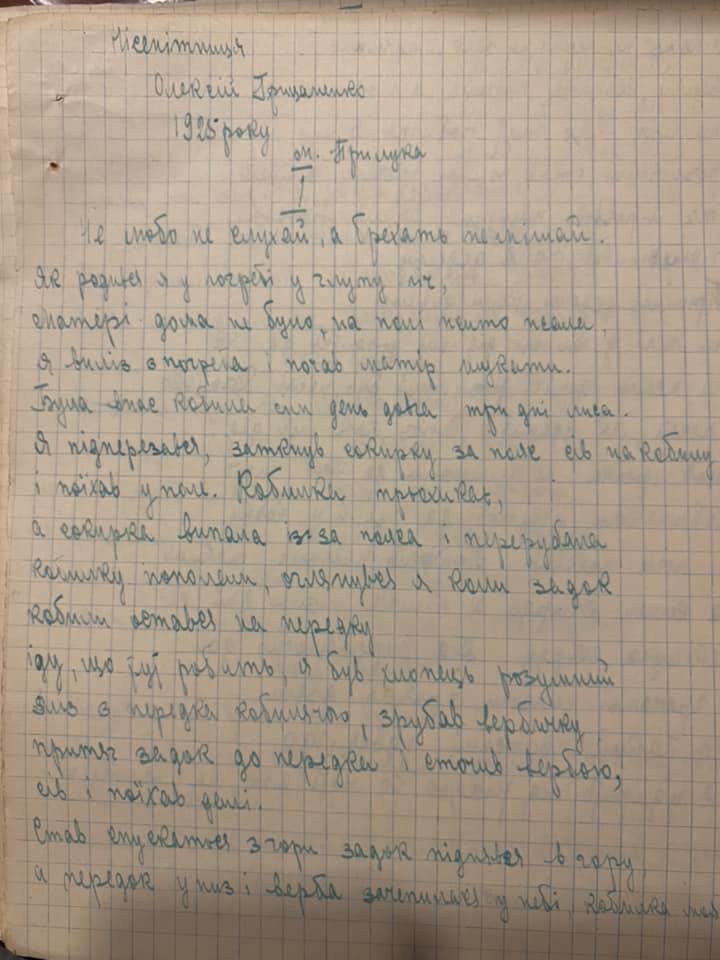 Нісенітниця
Олексій Гриценко
1925 року
оп. Прилука
I
Не любо не слухай, а брехать не мішай.
Як родився я у погребі у глупу ніч,
матері дома не було, на полі жито жала,
я виліз з погреба і почав матір шукати.
Була в нас кобила сім день довга три дні лиса.
Я підперезався, заткнув сокирку за пояс сів на кобилу
і поїхав у поле. Кобилка трюхикає,
а сокирка випала із за пояса і перерубала
кобилку пополам, оглянувся я коли задок
кобили остався на передку
їду, що тут робить, я був хлопець розумний
зліз з передка кобилячого, зрубав вербичку
притяг задок до передка і сточив вербою,
сів і поїхав далі.
Став спускаться з гори задок піднявся в гору
а передок у низ і верба зачепилась у небі, кобилка